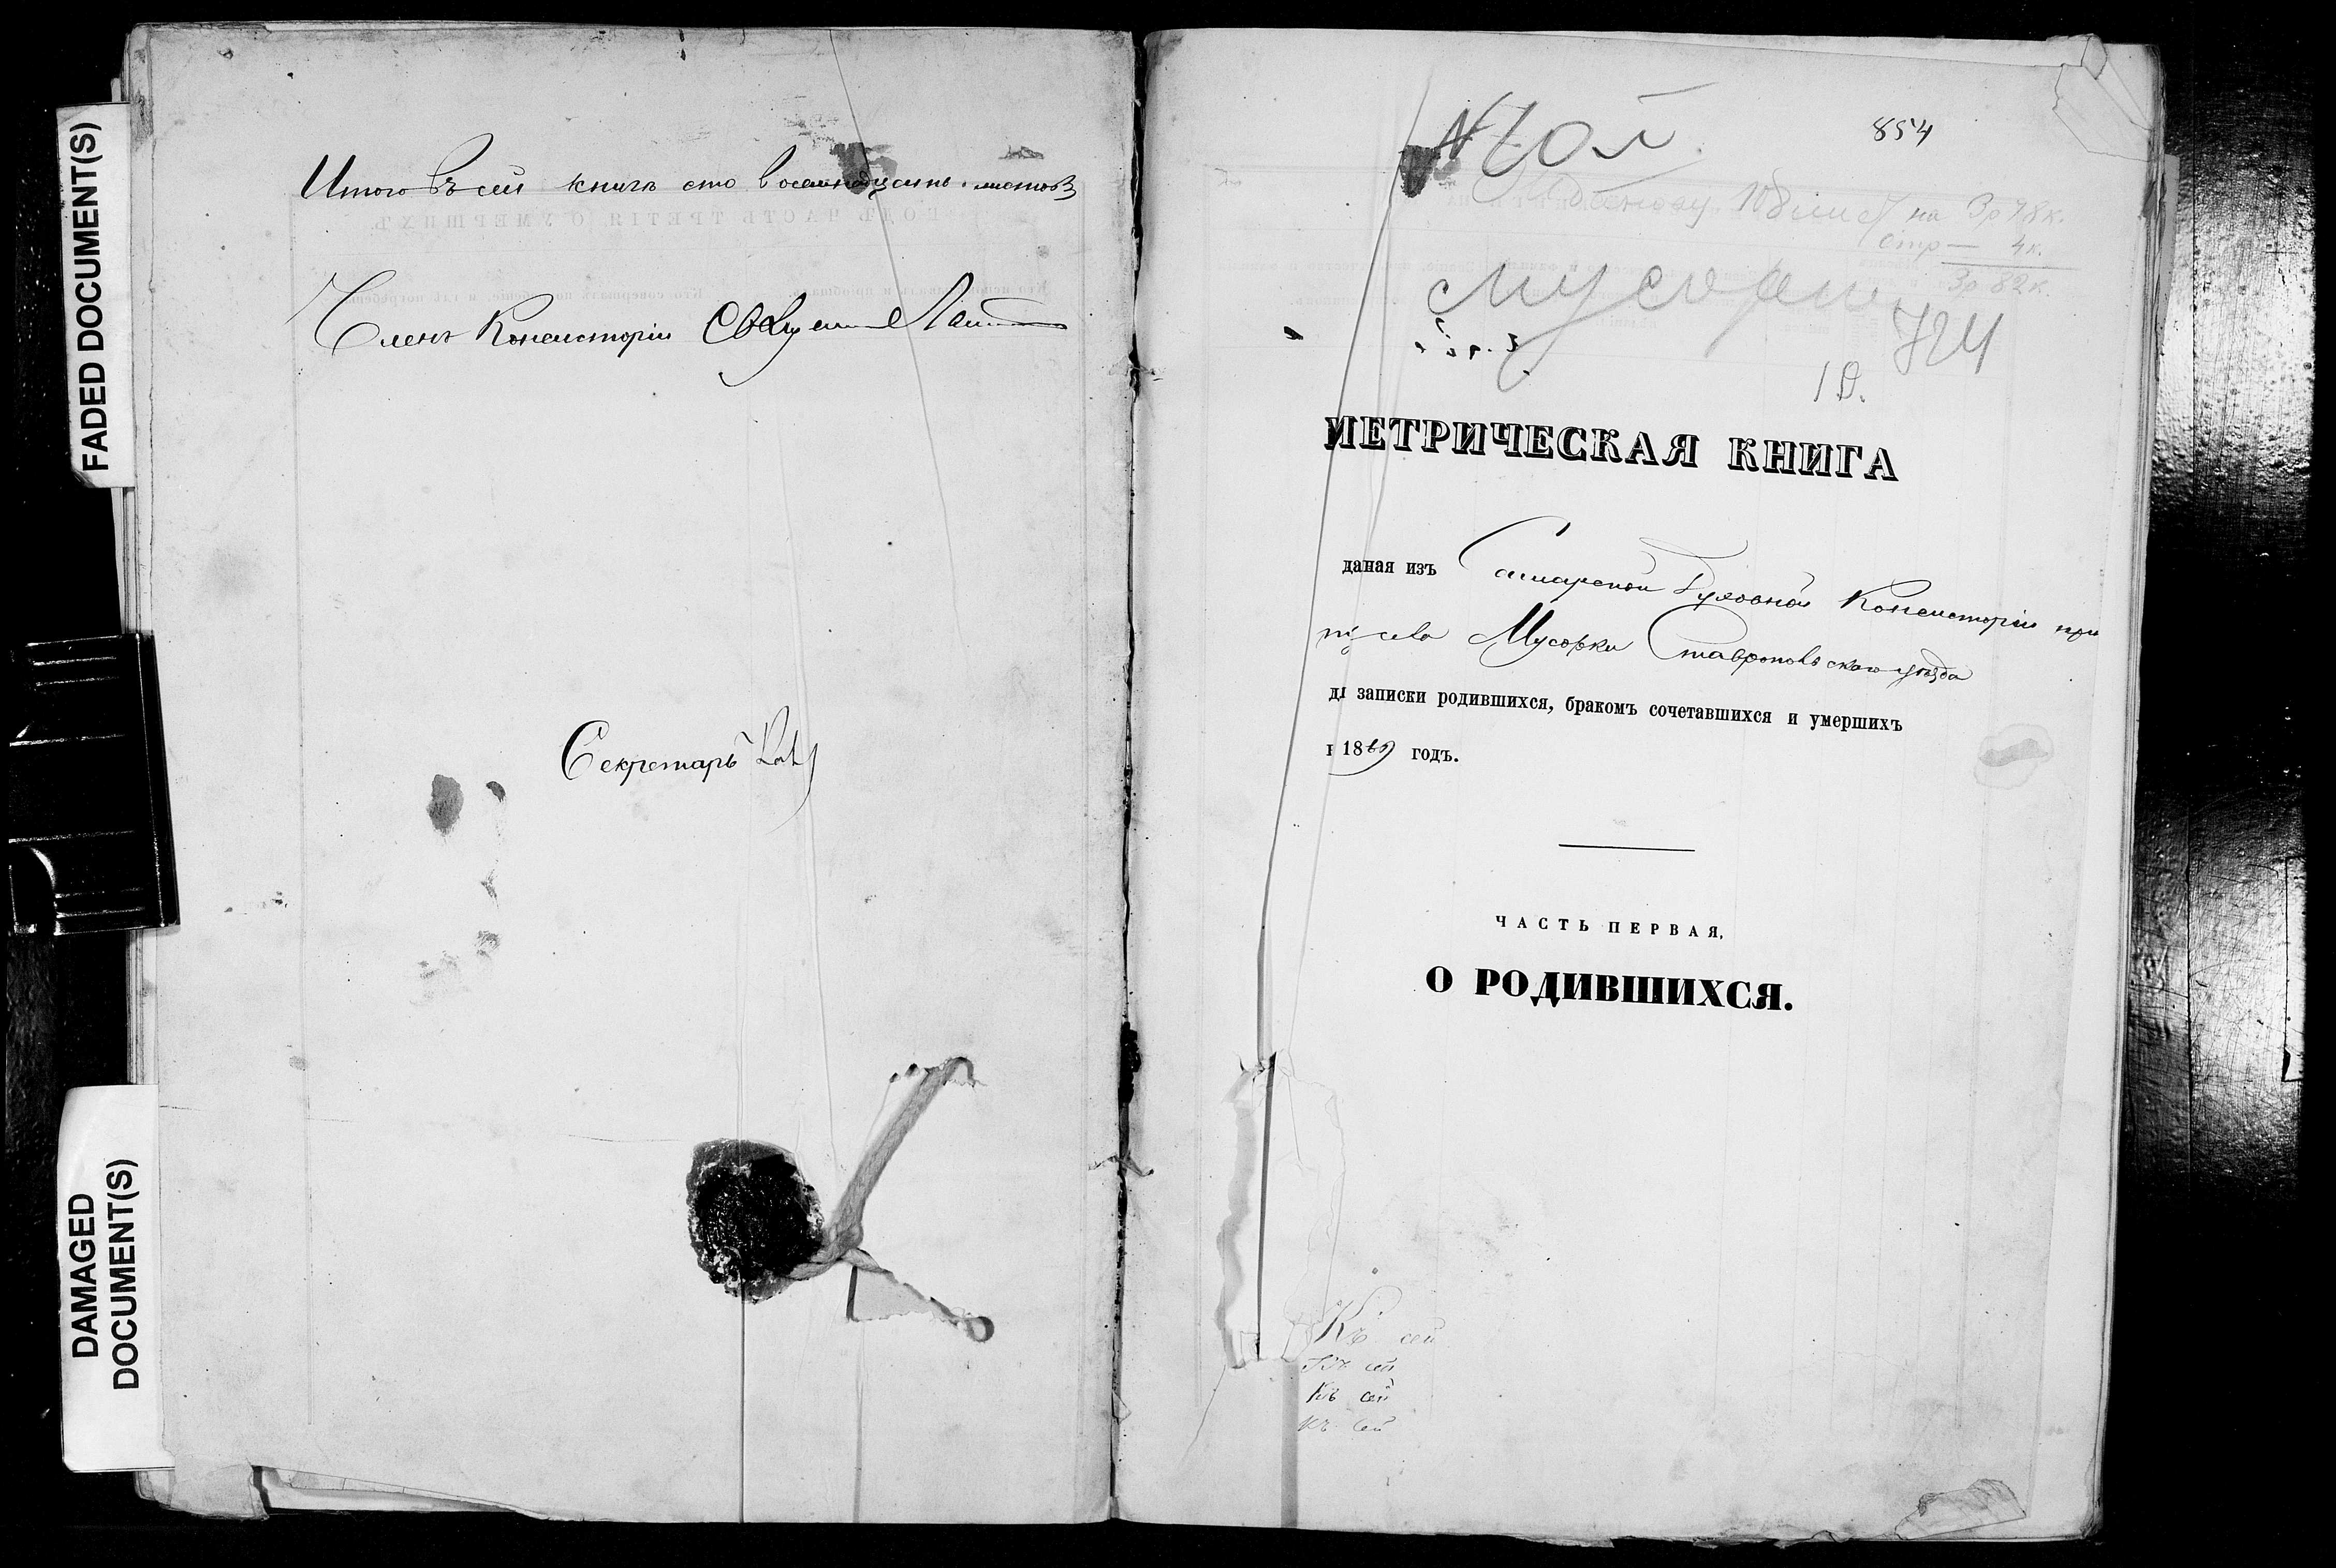 FADED DOCUMENT(S)
DAMAGED
DOCUMENT(S)
Итого въ сей книгѣ сто восемнадцать листовъ
Членъ Консисторіи Священникъ
Секретарь
854
108 лист на 3р 78к.
стр — 4к.
3р 82к.
Мусорки
724
МЕТРИЧЕСКАЯ КНИГА
даная изъ Самарской Духовной Консисторіи при
села Мусорки Ставропольскаго уѣзда
дл записки родившихся, бракомъ сочетавшихся и умершихъ
в 1869 годъ.
ЧАСТЬ ПЕРВАЯ.
О РОДИВШИХСЯ.
Къ сей
Къ сей
Къ сей
Къ сей